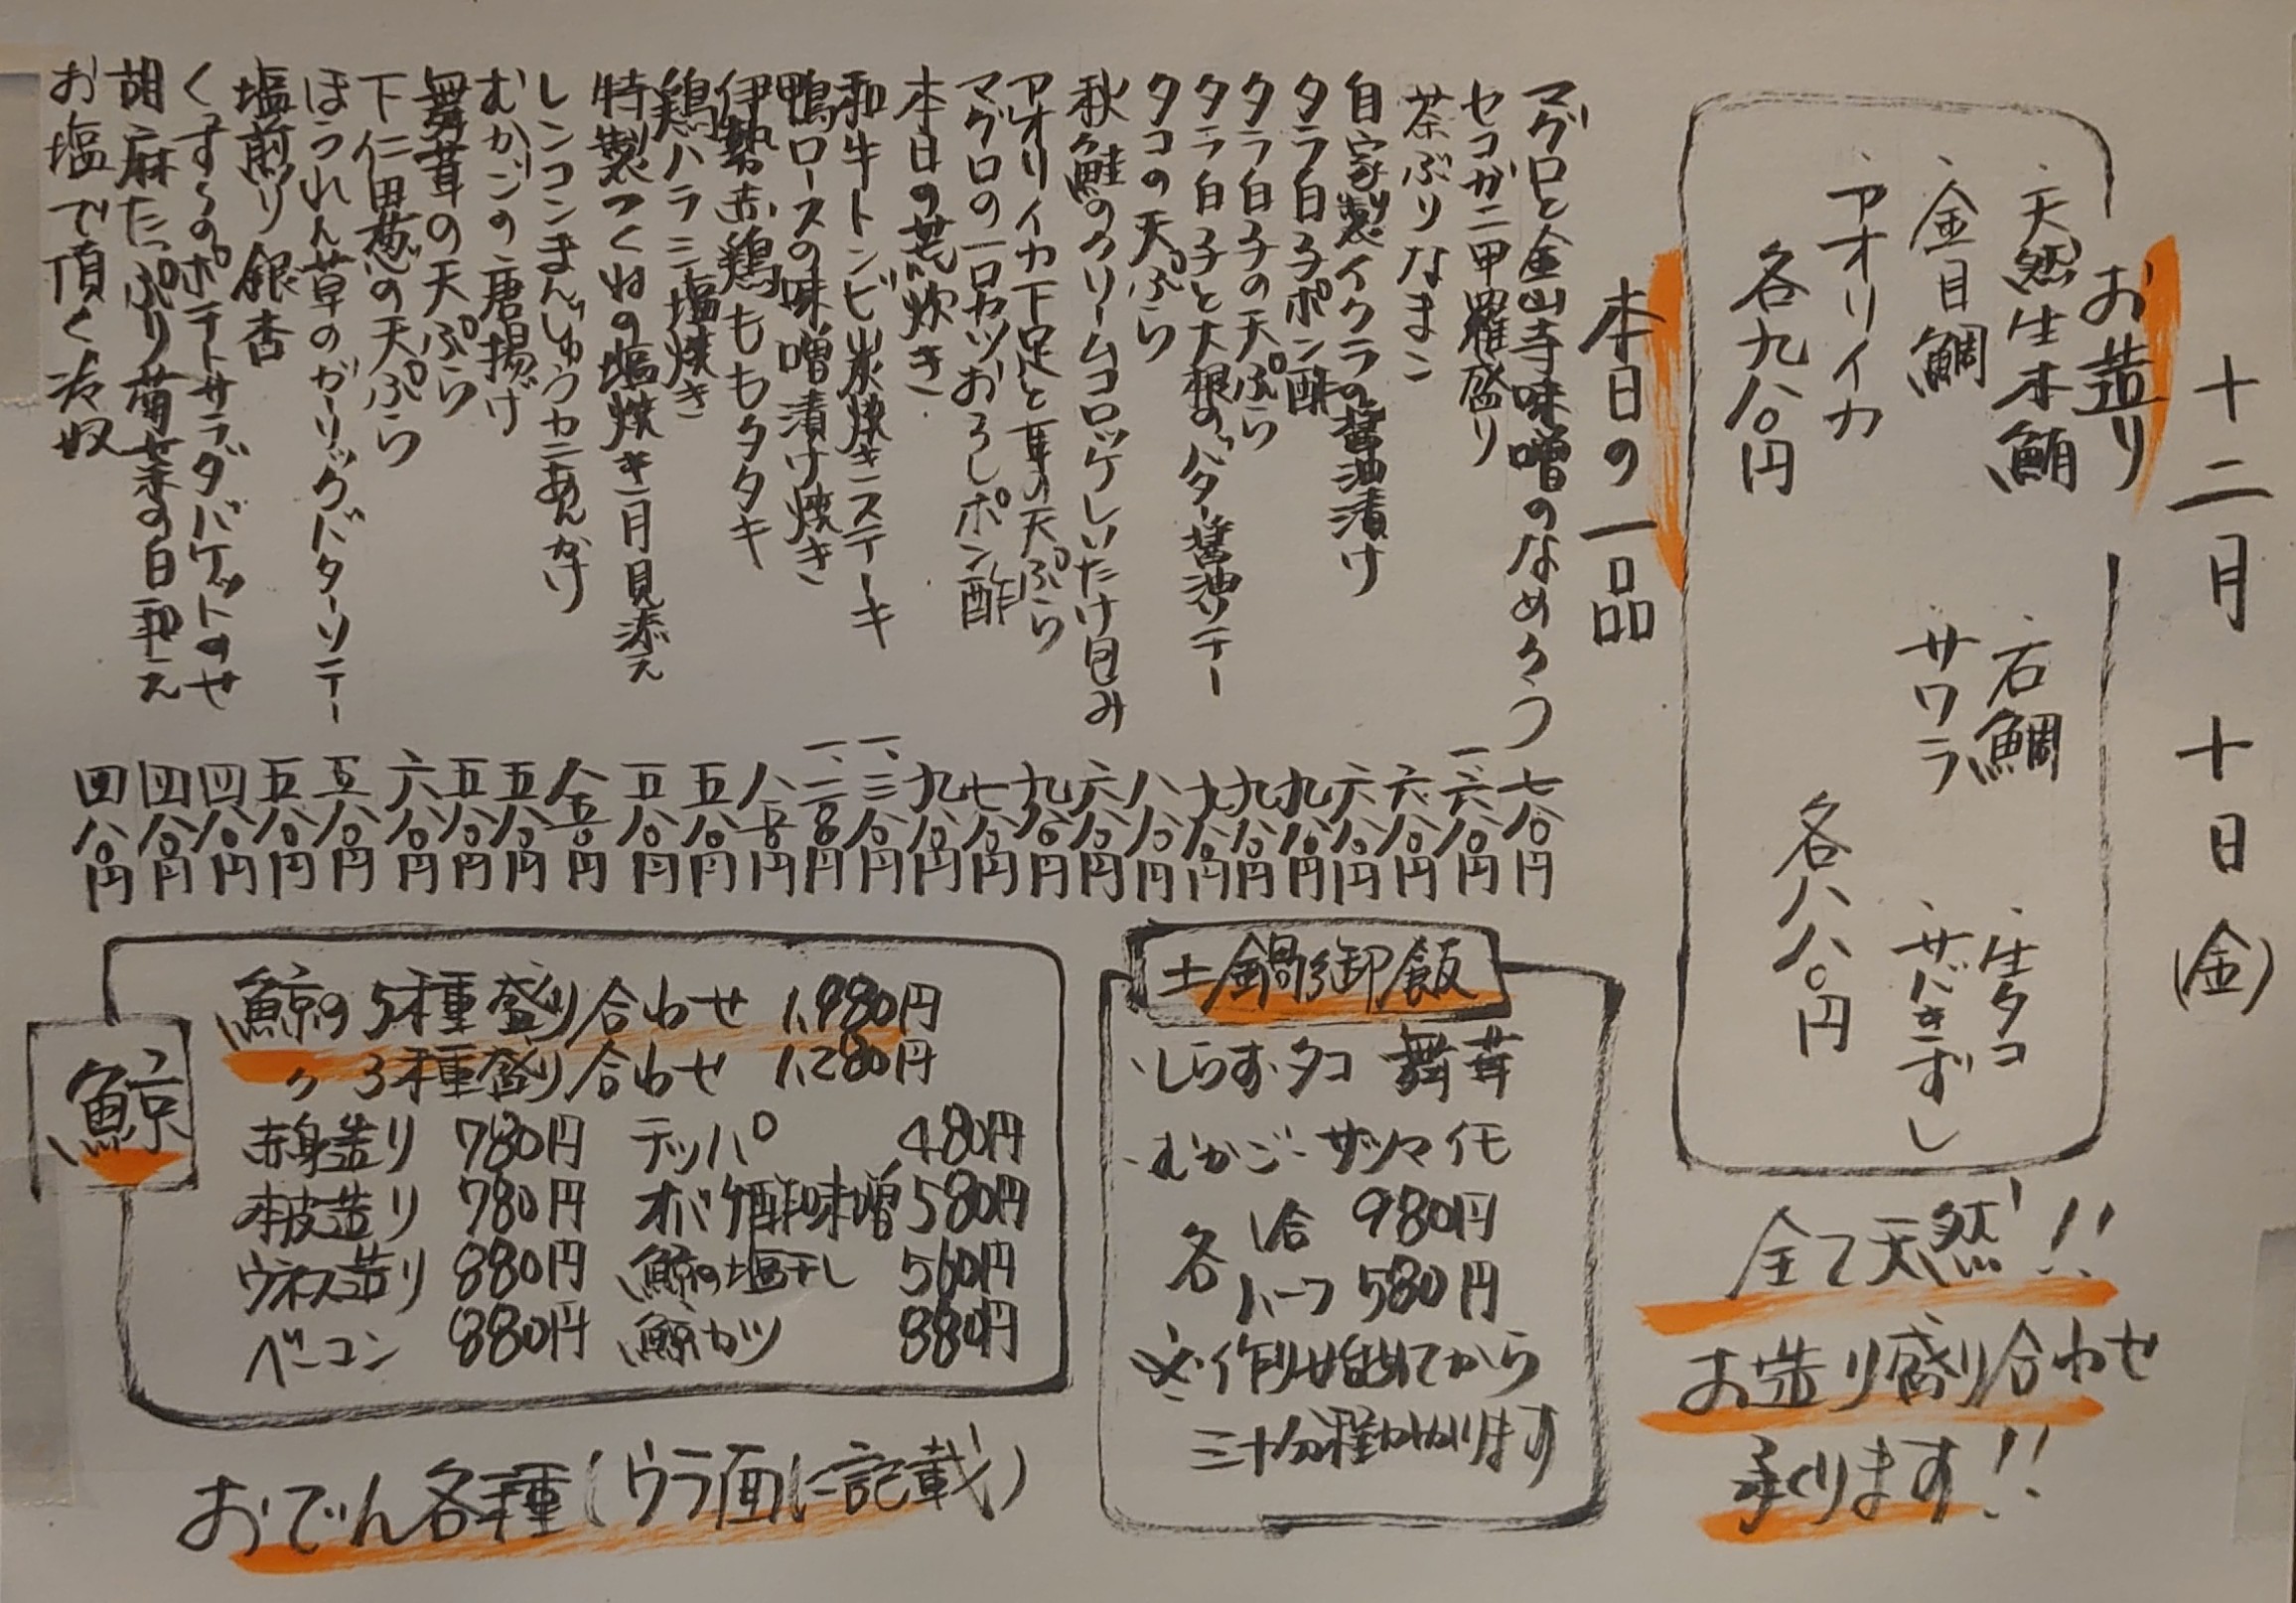 十二月十日(金)
お造り
・天然生本鮪
・石鯛
・生タコ
・金目鯛
・サワラ
・サバきずし
・アオリイカ
各九八〇円
各八八〇円
全て天然!!
お造り盛り合わせ
承ります!!
本日の一品
マグロと金山寺味噌のなめろう 七八〇円
セコガニ甲羅盛り 一、六八〇円
茶ぶりなまこ 六八〇円
自家製イクラの醤油漬け 六八〇円
タラ白子ポン酢 九八〇円
タラ白子の天ぷら 九八〇円
タラ白子と大根のバター醤油ソテー 九八〇円
タコの天ぷら 八八〇円
秋鮭のクリームコロッケしいたけ包み 六八〇円
アオリイカ下足と耳の天ぷら 九八〇円
マグロの一口カツおろしポン酢 七八〇円
本日の荒炊き 九八〇円
和牛トンビ炭焼きステーキ 一、三八〇円
鴨ロースの味噌漬け焼き 一、二八〇円
伊勢赤鶏ももタタキ 八五〇円
鶏ハラミ塩焼き 五八〇円
特製つくねの塩焼き月見添え 五八〇円
レンコンまんじゅうカニあんかけ 八五〇円
むかごの唐揚げ 五八〇円
舞茸の天ぷら 五八〇円
下仁田葱の天ぷら 六八〇円
ほうれん草のガーリックバターソテー 五八〇円
塩煎り銀杏 五八〇円
くずしポテトサラダバケットのせ 四八〇円
胡麻たっぷり菊菜の白和え 四八〇円
お塩で頂く冷奴 四八〇円
土鍋御飯
・しらす・タコ 舞茸
・むかご・サツマイモ
各 1合 980円
ハーフ 580円
※作り始めてから
三十分程かかります
鯨
鯨の5種盛り合わせ 1,980円
〃 3種盛り合わせ 1,280円
赤身造り 780円 テッパ 480円
本皮造り 780円 オバケ酢味噌 580円
ウネス造り 880円 鯨の塩干し 560円
ベーコン 880円 鯨カツ 880円
おでん各種(ウラ面に記載)